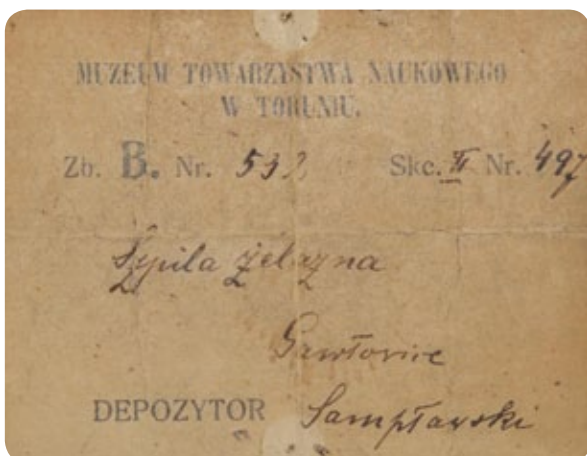 MUZEUM TOWARZYSTWA NAUKOWEGO
W TORUNIU.
Zb. B. Nr. 533 Skc. II Nr. 497
Szpila żelazna
Gawłowice
DEPOZYTOR Sampławski